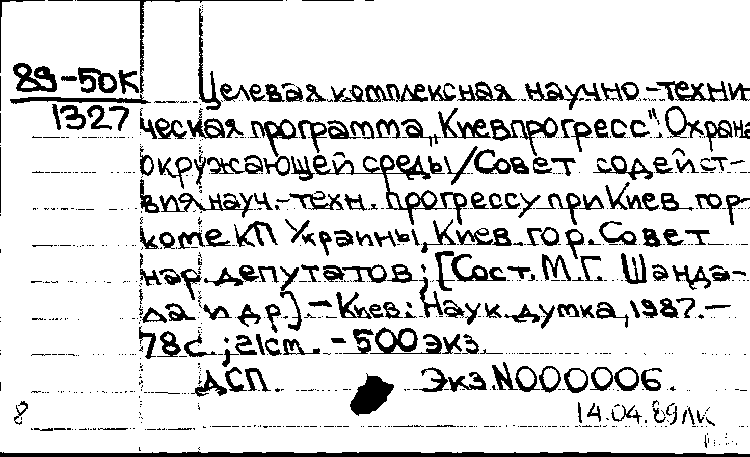 89-50К
1327
Целевая комплексная научно-техни
ческая программа „Киевпрогресс“. Охрана
окружающей среды/Совет содейст-
вия науч.-техн. прогрессу при Киев. гор-
коме КП Украины, Киев. гор. Совет
нар. депутатов; [Сост. М.Г. Шанда-
ла и др.].-Киев: Наук. думка, 1987.-
78с.; 21см. -500экз.
ДСП. Экз.N000006.
8 14.04.89ЛК